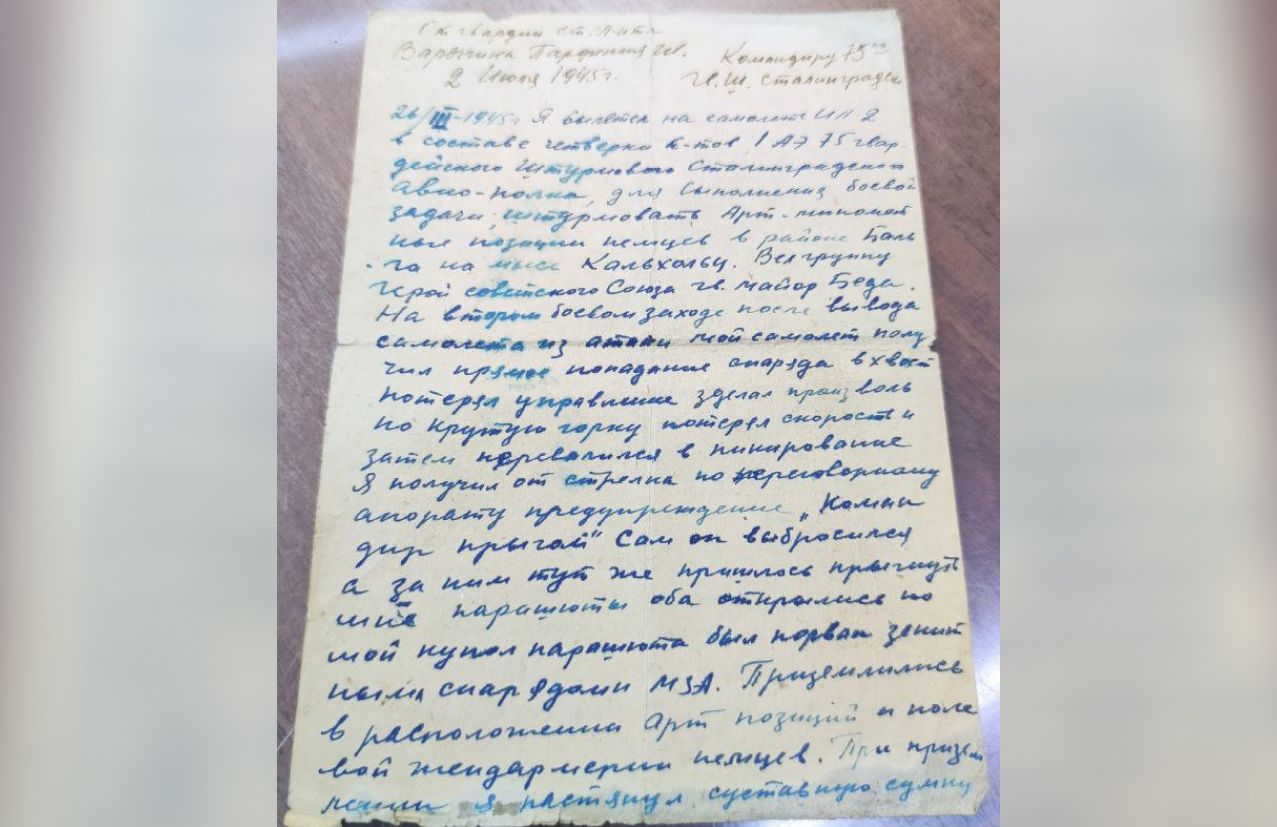 От гвардии ст. л-та
Варычина Парфения И.
2 Июля 1945г.
Командиру 75го
Гв. Ш. Сталинградск
26/III-1945г Я вылетел на самолете ИЛ 2
в составе четверки с-тов 1 АЭ 75 гвар-
дейского Штурмового Сталинградского
Авио-полка, для выполнения боевой
задачи, штурмовать Арт-миномот
ные позиции немцев в районе Баль
га на мысе Кальхольц. Вел группу
Герой советского Союза гв. майор Беда.
На втором боевом заходе после вывода
самолета из атаки мой самолет полу
чил прямое попадание снаряда в хвост
потерял управление зделал произволь
но крутую горку потерял скорость и
затем перевалился в пикирование
Я получил от стрелка по переговорному
апорату предупреждение „Коман
дир прыгай" Сам он выбросился
а за ним тут же пришлось прыгнуть
мне парашюты оба открылись но
мой купол парашюта был порван зенит
ными снарядами МЗА. Приземлились
в расположении Арт позиций и поле
вой жендармерии немцев. При призем
лении я растянул суставную сумку